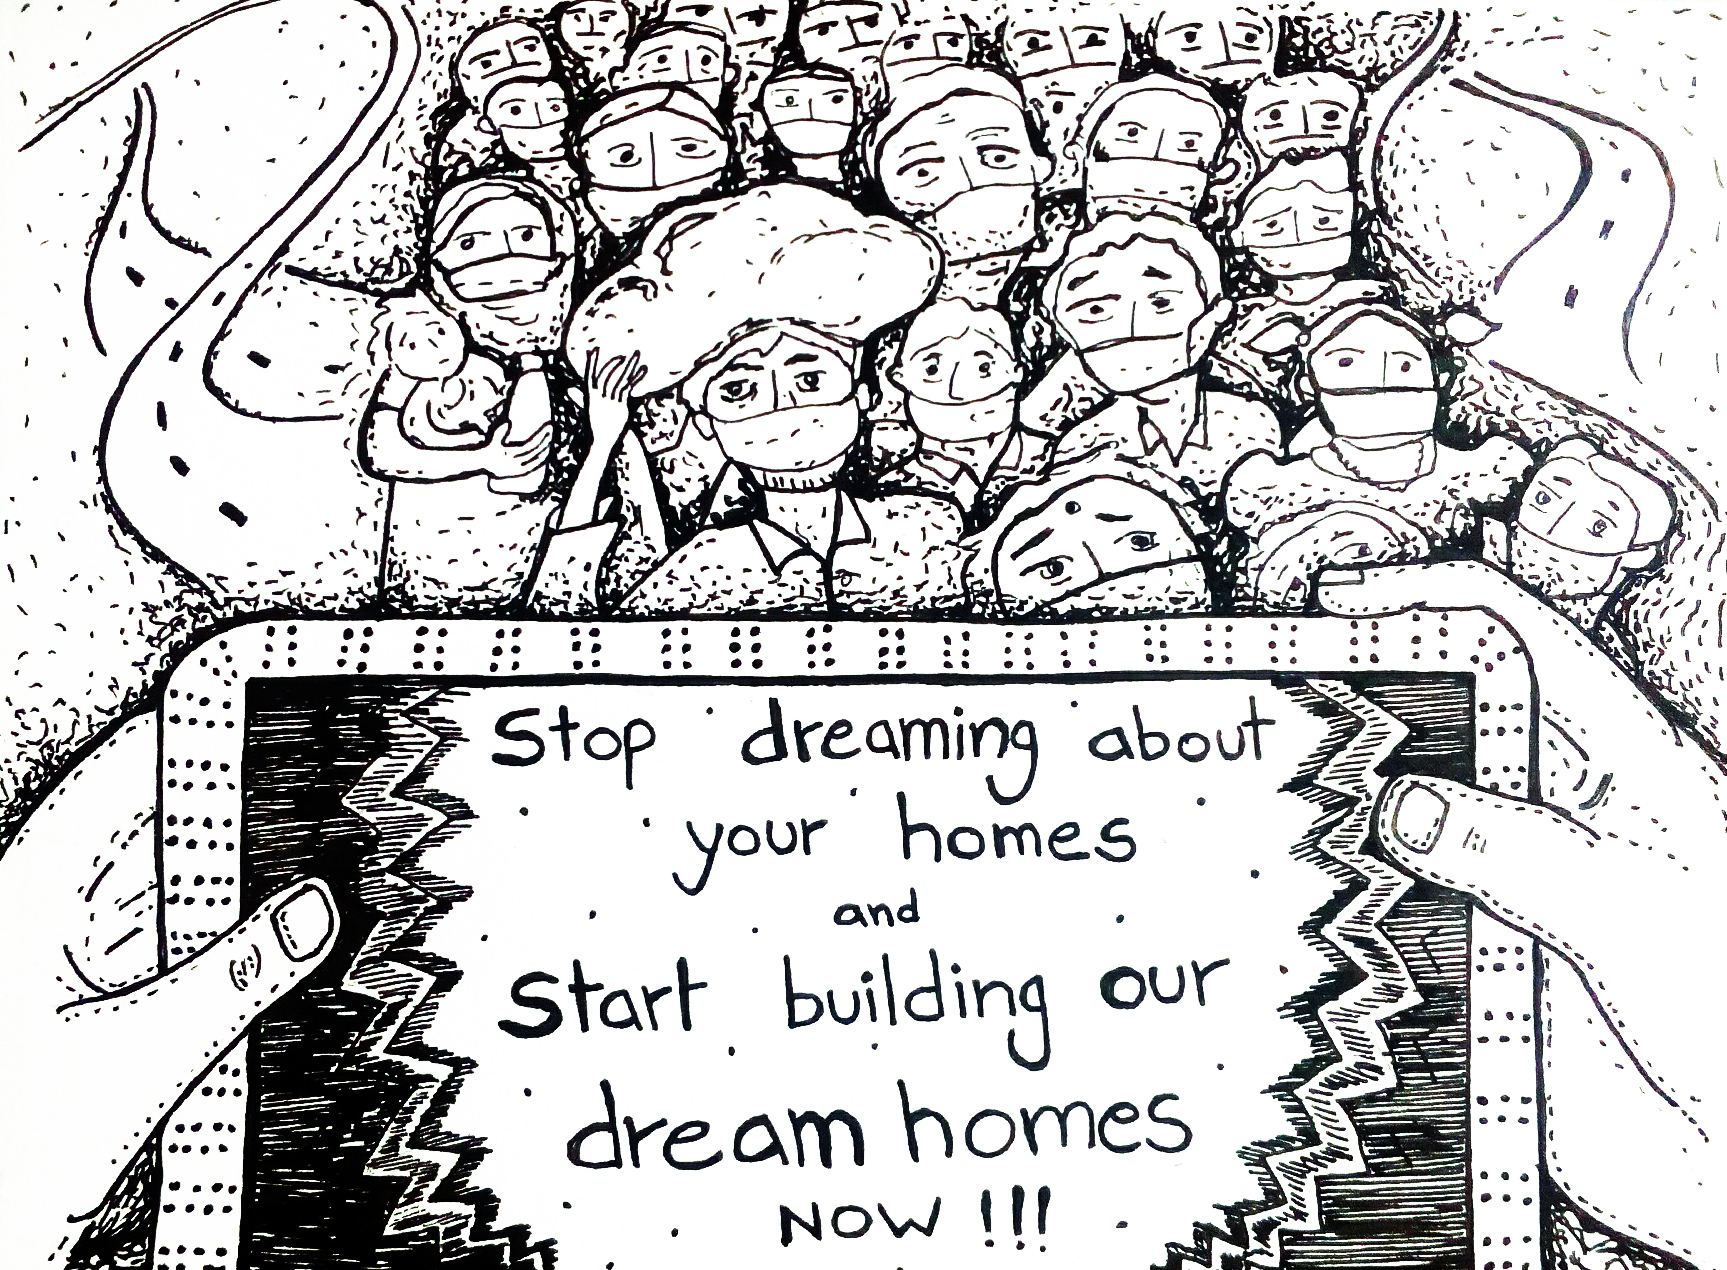 Stop dreaming about
your homes
and
Start building our
dream homes
NOW !!!